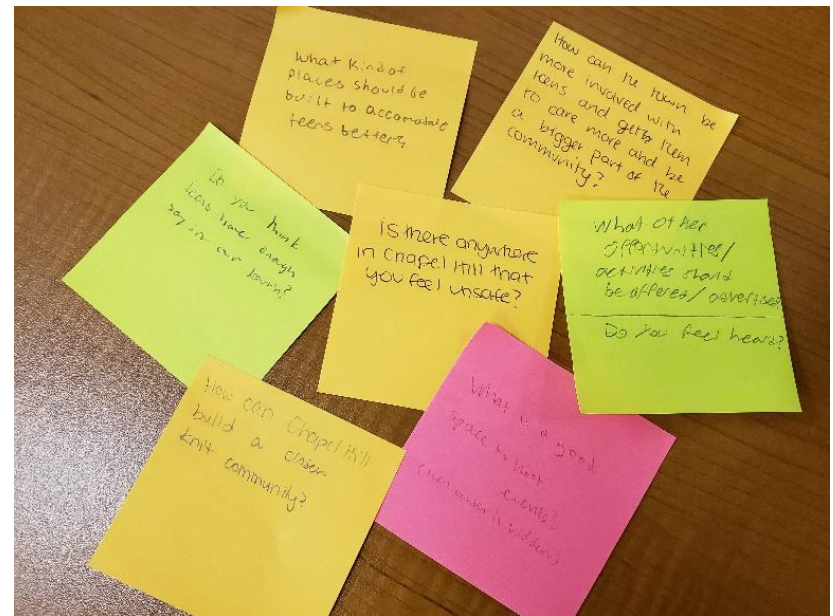 What kind of
places should be
built to accomodate
teens better?
How can the town be
more involved with
teens and gets them
to care more and be
a bigger part of the
community?
Do you think
teens have enough
say in our town?
is there anywhere
in Chapel Hill that
you feel unsafe?
What other
opportunities/
activities should
be offered/advertised
Do you feel heard?
How can Chapel Hill
build a closer
knit community?
What is a good
space to host
events?